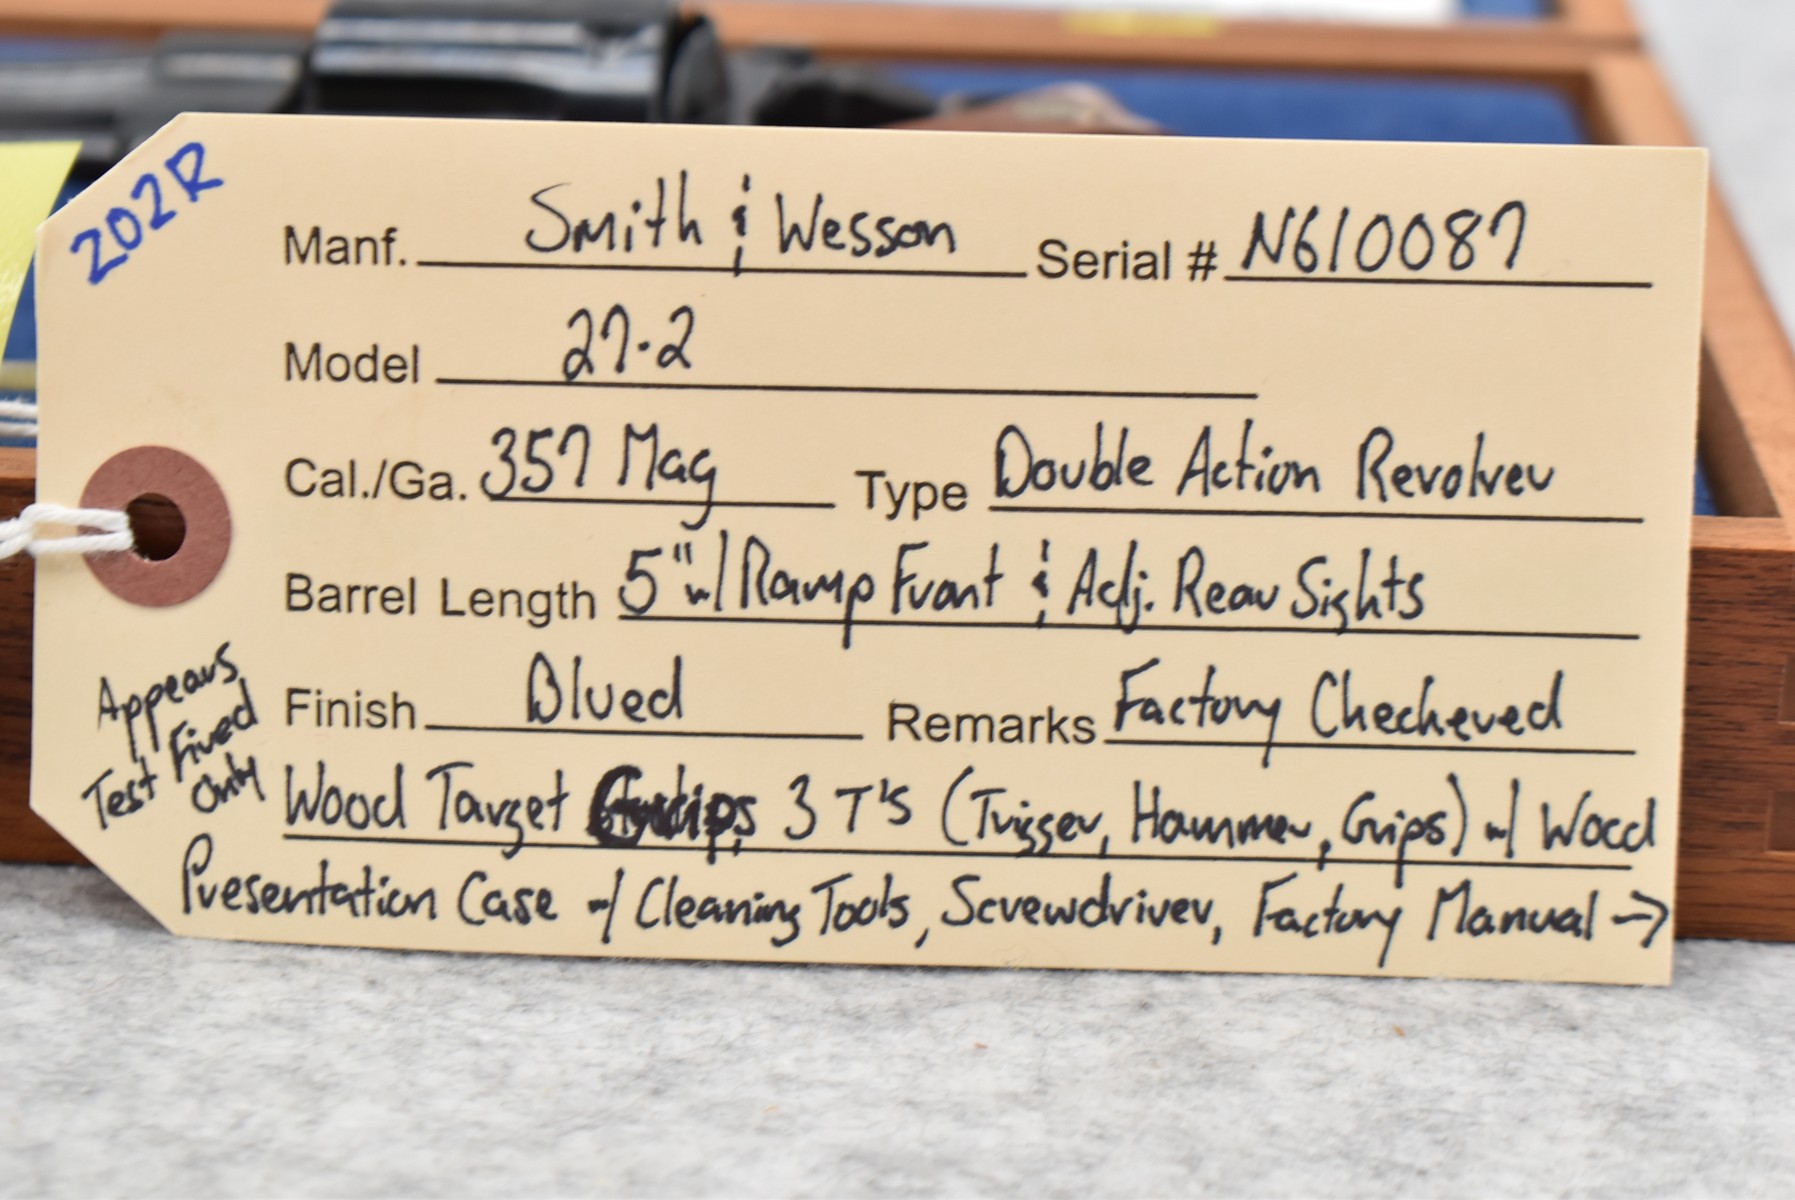 202R
Manf. Smith & Wesson Serial # N610087
Model 27-2
Cal./Ga. 357 Mag Type Double Action Revolver
Barrel Length 5" w/ Ramp Front & Adj. Rear Sights
Finish Blued Remarks Factory Checkered
Wood Target Grips, 3 T's (Trigger, Hammer, Grips) w/ Wood
Presentation Case w/ Cleaning Tools, Screwdriver, Factory Manual →
Appears
Test Fired
Only